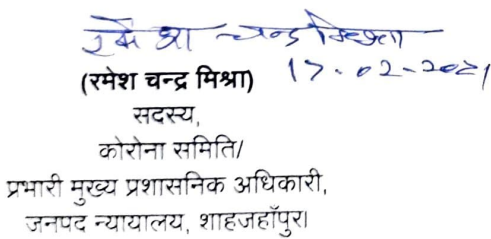 रमेश चन्द्र मिश्रा
17.02.2021
(रमेश चन्द्र मिश्रा)
सदस्य,
कोरोना समिति/
प्रभारी मुख्य प्रशासनिक अधिकारी,
जनपद न्यायालय, शाहजहाँपुर।